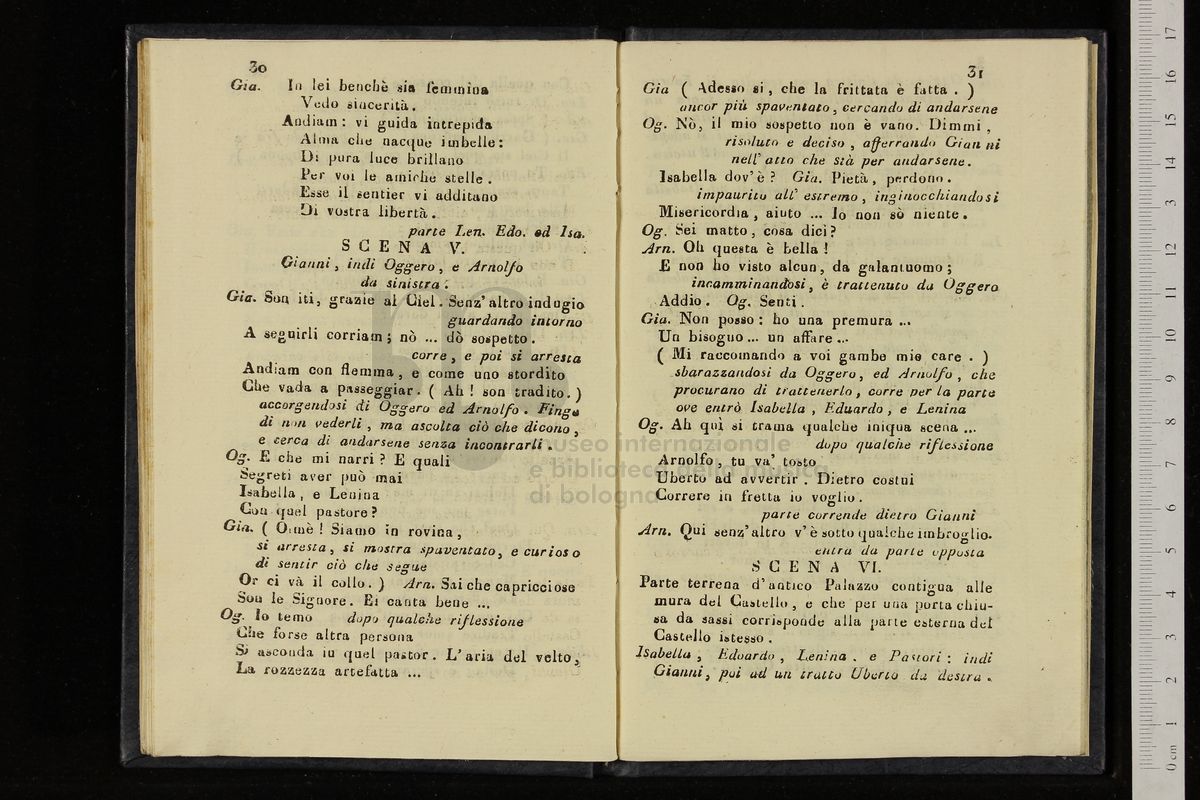 30
Gia. In lei benchè sia femmina
Vedo sincerità.
Andiam: vi guida intrepida
Alma che nacque imbelle:
Di pura luce brillano
Per voi le amiche stelle.
Esse il sentier vi additano
Di vostra libertà.
parte Len. Edo. ed Isa.
SCENA V.
Gianni, indi Oggero, e Arnolfo
da sinistra.
Gia. Son iti, grazie al Ciel. Senz' altro indugio
guardando intorno
A seguirli corriam; nò ... dò sospetto.
corre, e poi si arresta
Andiam con flemma, e come uno stordito
Che vada a passeggiar. ( Ah! son tradito. )
accorgendosi di Oggero ed Arnolfo. Finge
di non vederli, ma ascolta ciò che dicono,
e cerca di andarsene senza incontrarli.
Og. E che mi narri? E quali
Segreti aver può mai
Isabella, e Lenina
Con quel pastore?
Gia. ( Oimè! Siamo in rovina,
si arresta, si mostra spaventato, e curioso
di sentir ciò che segue
Or ci và il collo. ) Arn. Sai che capricciose
Son le Signore. Ei canta bene ...
Og. Io temo dopo qualche riflessione
Che forse altra persona
Si asconda in quel pastor. L' aria del volto,
La rozzezza artefatta ...
31
Gia ( Adesso si, che la frittata è fatta. )
ancor più spaventato, cercando di andarsene
Og. Nò, il mio sospetto non è vano. Dimmi,
risoluto e deciso, afferrando Gianni
nell' atto che stà per andarsene.
Isabella dov' è? Gia. Pietà, perdono.
impaurito all' estremo, inginocchiandosi
Misericordia, aiuto ... Io non sò niente.
Og. Sei matto, cosa dici?
Arn. Oh questa è bella!
E non ho visto alcun, da galantuomo;
incamminandosi, è trattenuto da Oggero
Addio. Og. Senti.
Gia. Non posso: ho una premura ...
Un bisogno ... un affare ...
( Mi raccomando a voi gambe mie care. )
sbarazzandosi da Oggero, ed Arnolfo, che
procurano di trattenerlo, corre per la parte
ove entrò Isabella, Eduardo, e Lenina
Og. Ah quì si trama qualche iniqua scena ...
dopo qualche riflessione
Arnolfo, tu va' tosto
Uberto ad avvertir. Dietro costui
Correre in fretta io voglio.
parte corrende dietro Gianni
Arn. Qui senz' altro v' è sotto qualche imbroglio.
entra da parte opposta
SCENA VI.
Parte terrena d' antico Palazzo contigua alle
mura del Castello, e che per una porta chiu-
sa da sassi corrisponde alla parte esterna del
Castello istesso.
Isabella, Eduardo, Lenina, e Pastori: indi
Gianni, poi ad un tratto Uberto da destra.
museo internazionale
e biblioteca della musica
di bologna
0 cm 1 2 3 4 5 6 7 8 9 10 11 12 13 14 15 16 17